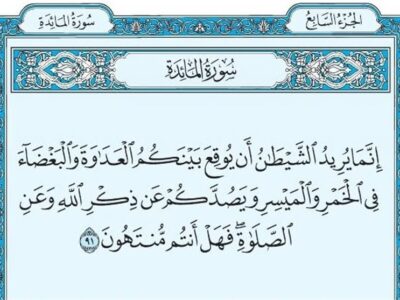 الجزء السابع
سورة المائدة
سورة المائدة
إِنَّمَا يُرِيدُ الشَّيْطَٰنُ أَن يُوقِعَ بَيْنَكُمُ الْعَدَٰوَةَ وَالْبَغْضَآءَ
فِى الْخَمْرِ وَالْمَيْسِرِ وَيَصُدَّكُمْ عَن ذِكْرِ اللَّهِ وَعَنِ
الصَّلَوٰةِ ۖ فَهَلْ أَنتُم مُّنتَهُونَ ٩١